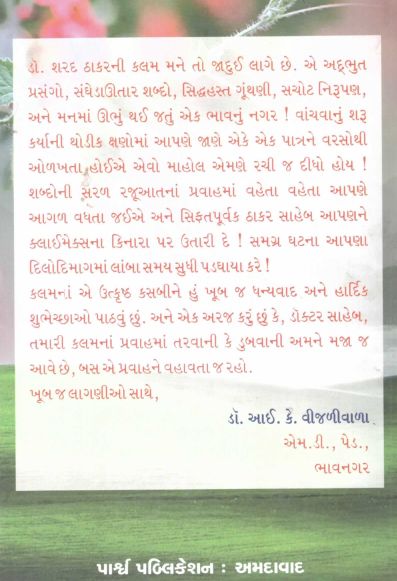 ડૉ. શરદ ઠાકરની કલમ મને તો જાદુઈ લાગે છે. એ અદ્ભુત
પ્રસંગો, સંઘેડાઉતાર શબ્દો, સિદ્ધહસ્ત ગૂંથણી, સચોટ નિરૂપણ,
અને મનમાં ઊભું થઈ જતું એક ભાવનું નગર ! વાંચવાનું શરૂ
કર્યાની થોડીક ક્ષણોમાં આપણે જાણે એકે એક પાત્રને વરસોથી
ઓળખતા હોઈએ એવો માહોલ એમણે રચી જ દીધો હોય !
શબ્દોની સરળ રજૂઆતનાં પ્રવાહમાં વહેતા વહેતા આપણે
આગળ વધતા જઈએ અને સિફતપૂર્વક ઠાકર સાહેબ આપણને
ક્લાઈમેક્સના કિનારા પર ઉતારી દે ! સમગ્ર ઘટના આપણા
દિલોદિમાગમાં લાંબા સમય સુધી પડઘાયા કરે !
કલમનાં એ ઉત્કૃષ્ઠ કસબીને હું ખૂબ જ ધન્યવાદ અને હાર્દિક
શુભેચ્છાઓ પાઠવું છું. અને એક અરજ કરું છું કે, ડૉક્ટર સાહેબ,
તમારી કલમનાં પ્રવાહમાં તરવાની કે ડુબવાની અમને મજા જ
આવે છે, બસ એ પ્રવાહને વહાવતા જ રહો.
ખૂબ જ લાગણીઓ સાથે,
ડૉ. આઈ. કે. વીજળીવાળા
એમ.ડી., પેડ.,
ભાવનગર
પાર્શ્વ પબ્લિકેશન : અમદાવાદ